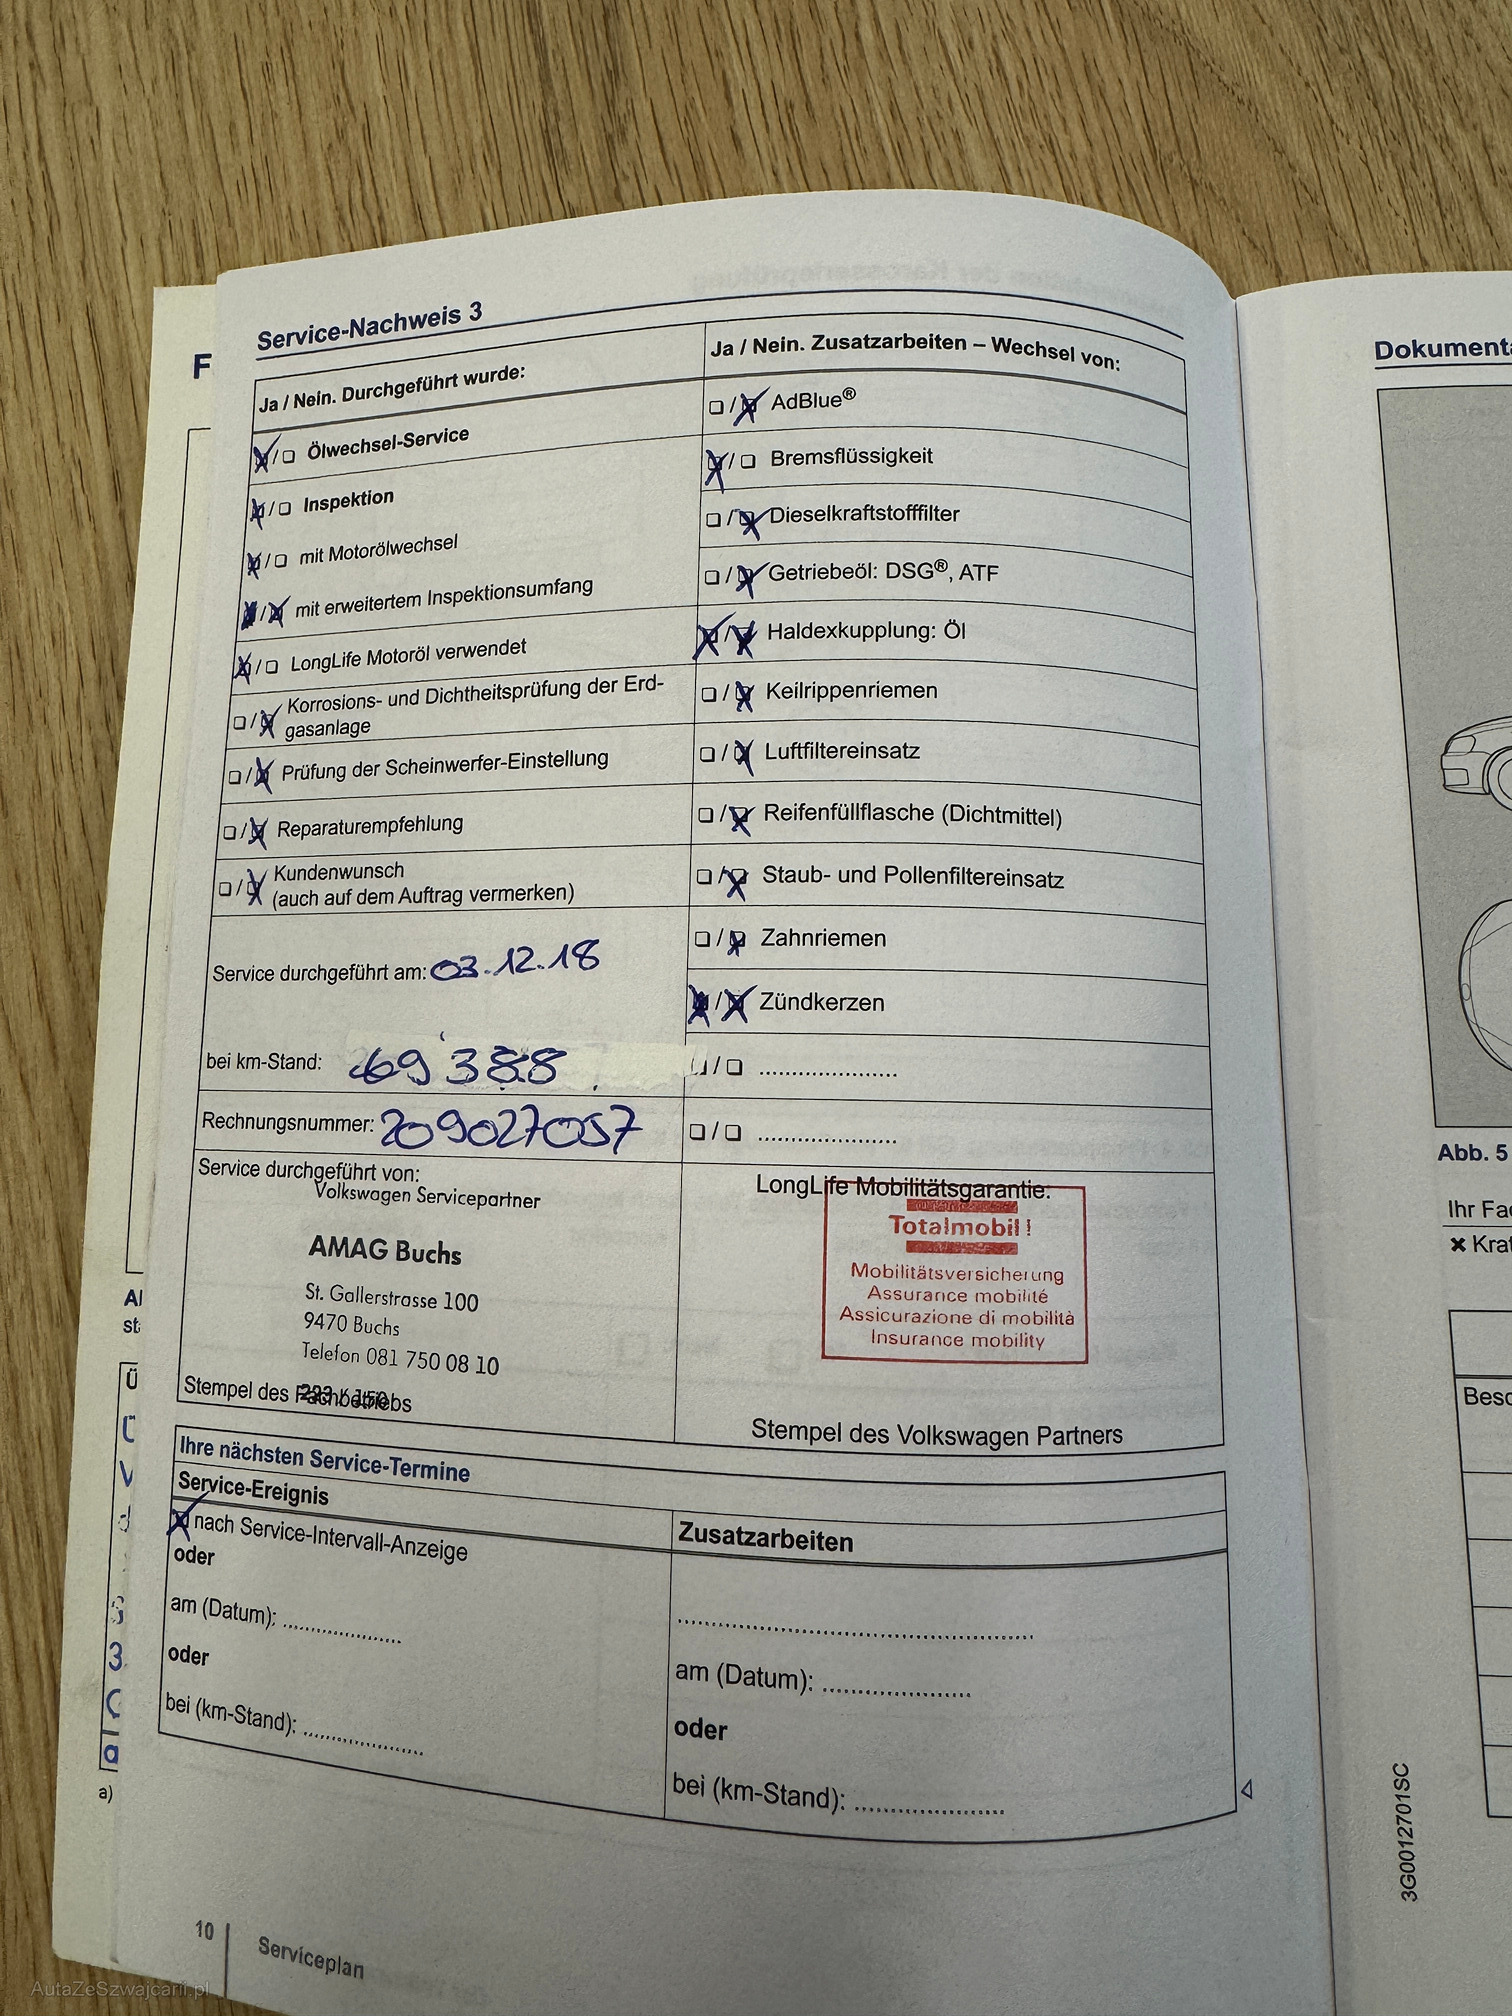 Service-Nachweis 3
Ja / Nein. Durchgeführt wurde:
Ölwechsel-Service
Inspektion
mit Motorölwechsel
mit erweitertem Inspektionsumfang
LongLife Motoröl verwendet
Korrosions- und Dichtheitsprüfung der Erd-
gasanlage
Prüfung der Scheinwerfer-Einstellung
Reparaturempfehlung
Kundenwunsch
(auch auf dem Auftrag vermerken)
Service durchgeführt am: 03.12.18
bei km-Stand: 69388
Rechnungsnummer: 209027057
Service durchgeführt von:
Volkswagen Servicepartner
AMAG Buchs
St. Gallerstrasse 100
9470 Buchs
Telefon 081 750 08 10
Stempel des Fachbetriebs
Ja / Nein. Zusatzarbeiten – Wechsel von:
AdBlue®
Bremsflüssigkeit
Dieselkraftstofffilter
Getriebeöl: DSG®, ATF
Haldexkupplung: Öl
Keilrippenriemen
Luftfiltereinsatz
Reifenfüllflasche (Dichtmittel)
Staub- und Pollenfiltereinsatz
Zahnriemen
Zündkerzen
LongLife Mobilitätsgarantie:
Totalmobil!
Mobilitätsversicherung
Assurance mobilité
Assicurazione di mobilità
Insurance mobility
Stempel des Volkswagen Partners
Ihre nächsten Service-Termine
Service-Ereignis
nach Service-Intervall-Anzeige
oder
am (Datum): ....................
oder
bei (km-Stand): ....................
Zusatzarbeiten
am (Datum): ....................
oder
bei (km-Stand): ....................
10
Serviceplan
Abb. 5
3G0012701SC
a)
AutaZeSzwajcarii.pl